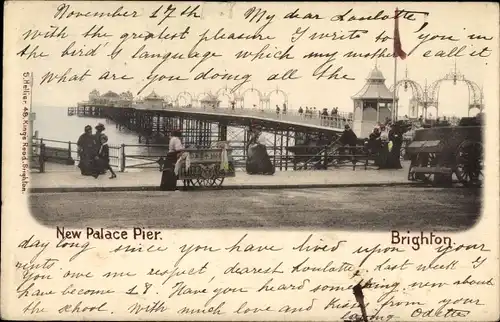 November 17th My dear Loulotte
with the greatest pleasure I write to you in
the bird's language which my mother call it
what are you doing all the
S. Hellier. 48. Kings Road. Brighton.
New Palace Pier.
Brighton.
day long since you have lived upon your
rents you owe me respect, dearest Loulotte, Last week I
have become 18. Have you heard some news from
the school. With much love and Kisses from your
loving Odette